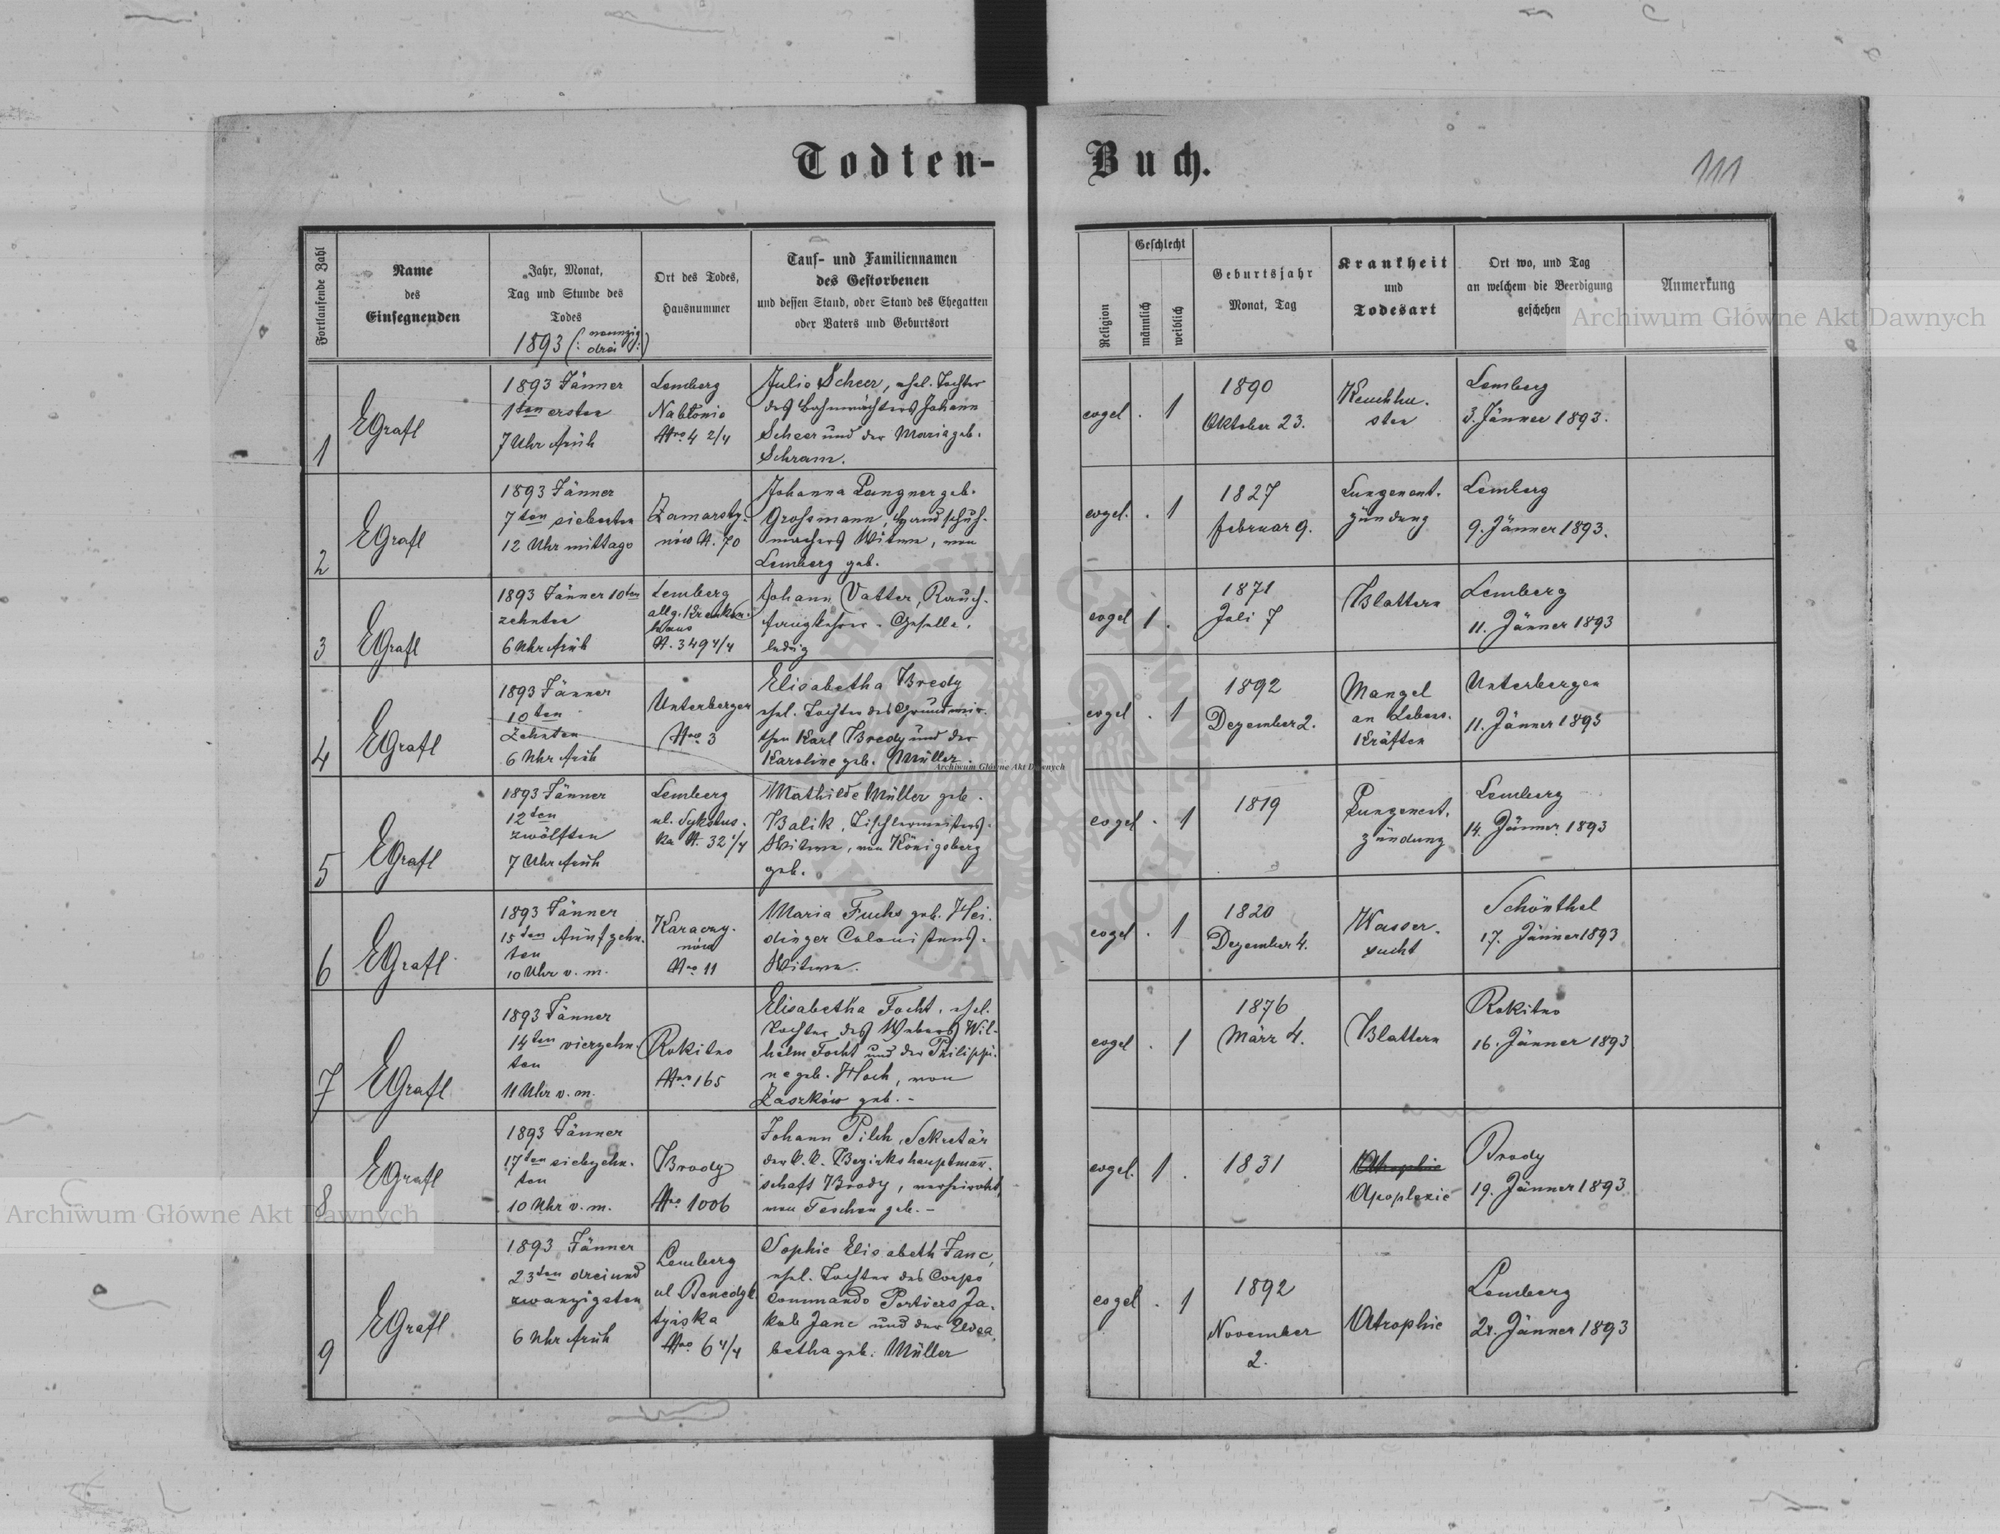 Todten-
Buch.
111
Fortlaufende Zahl
Name
des
Einsegnenden
Jahr, Monat,
Tag und Stunde des
Todes
1893 (: neunzig
drei :)
Ort des Todes,
Hausnummer
Tauf- und Familiennamen
des Gestorbenen
und dessen Stand, oder Stand des Ehegatten
oder Vaters und Geburtsort
Religion
Geschlecht
männlich
weiblich
Geburtsjahr
Monat, Tag
Krankheit
und
Todesart
Ort wo, und Tag
an welchem die Beerdigung
geschehen
Anmerkung
1
EGrafl
1893 Jänner
1ten ersten
7 Uhr früh
Lemberg
Nabłonie
Nro 4 2/4
Julie Scheer, ehel. Tochter
des Bahnwächters Johann
Scheer und der Maria geb.
Schram.
evgel
.
1
1890
Oktober 23.
Keuchhu-
sten
Lemberg
3. Jänner 1893.
2
EGrafl
1893 Jänner
7ten siebenten
12 Uhr mittags
Zamarsty-
nów N. 70
Johanna Langner geb.
Grossmann, Handschuh-
machers Witwe, von
Lemberg geb.
evgel.
.
1
1827
Februar 9.
Lungenent-
zündung
Lemberg
9. Jänner 1893.
3
EGrafl
1893 Jänner 10ten
zehnten
6 Uhr früh
Lemberg
allg. Kranken-
haus
N. 349 4/4
Johann Vatter, Rauch-
fangkehrer-Geselle,
ledig
evgel
1
.
1871
Juli 7
Blattern
Lemberg
11. Jänner 1893
4
EGrafl
1893 Jänner
10ten
zehnten
6 Uhr früh
Unterbergen
Nro 3
Elisabetha Bredy
ehel. Tochter des Grundwir-
then Karl Bredy und der
Karoline geb. Müller.
evgel
.
1
1892
Dezember 2.
Mangel
an Lebens-
kräften
Unterbergen
11. Jänner 1893
5
EGrafl
1893 Jänner
12ten
zwölften
7 Uhr früh
Lemberg
ul. Sykstus-
ka N. 32 1/4
Mathilde Müller geb.
Balik, Tischlermeisters-
Witwe, von Königsberg
geb.
evgel
.
1
1819
Lungenent-
zündung
Lemberg
14. Jänner 1893
6
EGrafl
1893 Jänner
15ten fünfzehn-
ten
10 Uhr v. m.
Karaczy-
nów
Nro 11
Maria Fuchs geb. Hei-
dinger Colonistens-
Witwe.
evgel
.
1
1820
Dezember 4.
Wasser-
sucht
Schönthal
17. Jänner 1893
7
EGrafl
1893 Jänner
14ten vierzehn-
ten
11 Uhr v. m.
Rokitno
Nro 165
Elisabetha Focht, ehel.
Tochter des Webers Wil-
helm Focht und der Philippi-
ne geb. Hoch, von
Zaszków geb. -
evgel
.
1
1876
März 4.
Blattern
Rokitno
16. Jänner 1893
8
EGrafl
1893 Jänner
17ten siebzehn-
ten
10 Uhr v. m.
Brody
Nro 1006
Johann Pilch, Sekretär
der k. k. Bezirkshauptman̄-
schaft Brody, verheirathet,
von Teschen geb. -
evgel.
1
.
1831
Atrophie
Apoplexie
Brody
19. Jänner 1893
9
EGrafl
1893 Jänner
23ten dreiund
zwanzigsten
6 Uhr früh
Lemberg
ul Benedyk-
tyńska
Nro 6 4/4
Sophie Elisabeth Janc,
ehel. Tochter des Corps
Commando Portiers Ja-
kob Janc und der Elisa-
betha geb. Müller
evgel
.
1
1892
November
2.
Atrophie
Lemberg
Jänner 1893
Archiwum Główne Akt Dawnych
Archiwum Główne Akt Dawnych
Archiwum Główne Akt Dawnych